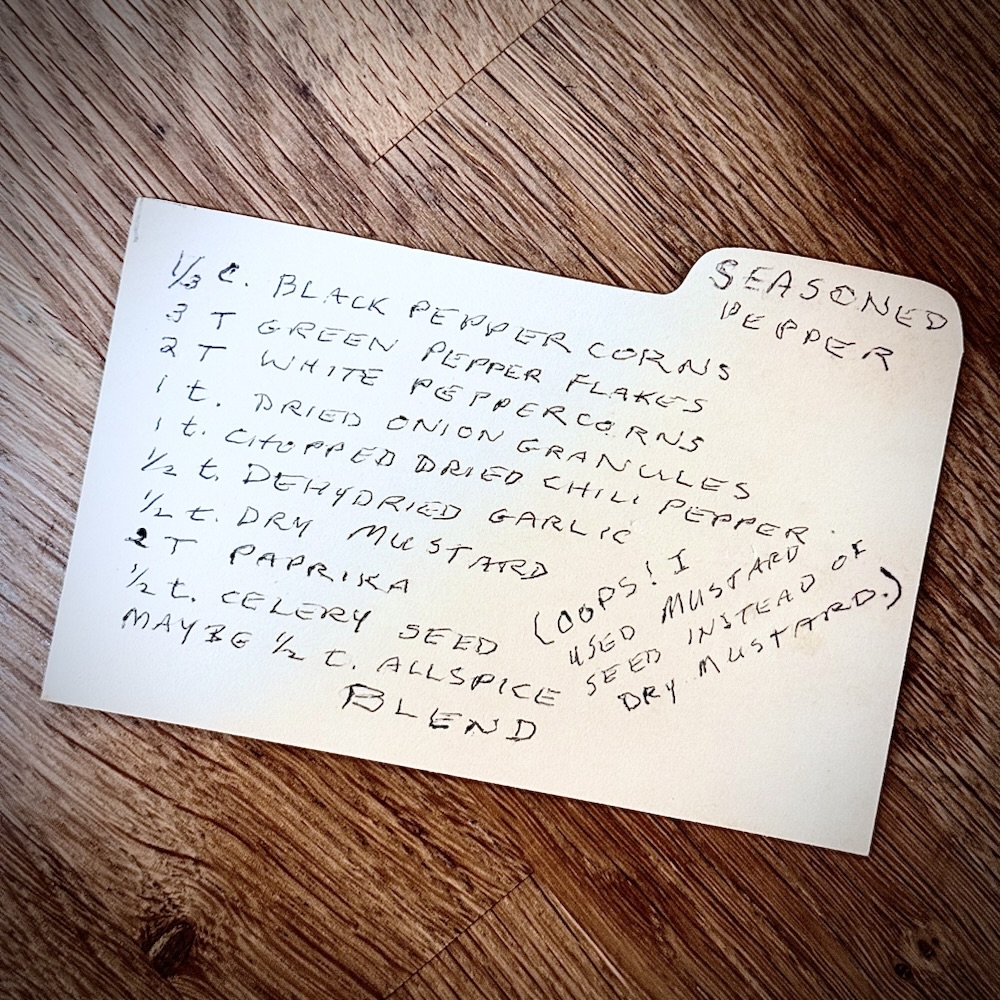 SEASONED
PEPPER
1/3 C. BLACK PEPPER CORNS
3 T GREEN PEPPER FLAKES
2 T WHITE PEPPERCORNS
1 t. DRIED ONION GRANULES
1 t. CHOPPED DRIED CHILI PEPPER
1/2 t. DEHYDRIED GARLIC
1/2 t. DRY MUSTARD
2 T PAPRIKA
1/2 t. CELERY SEED
MAYBE 1/2 t. ALLSPICE
BLEND
(OOPS! I
USED MUSTARD
SEED INSTEAD OF
DRY MUSTARD.)